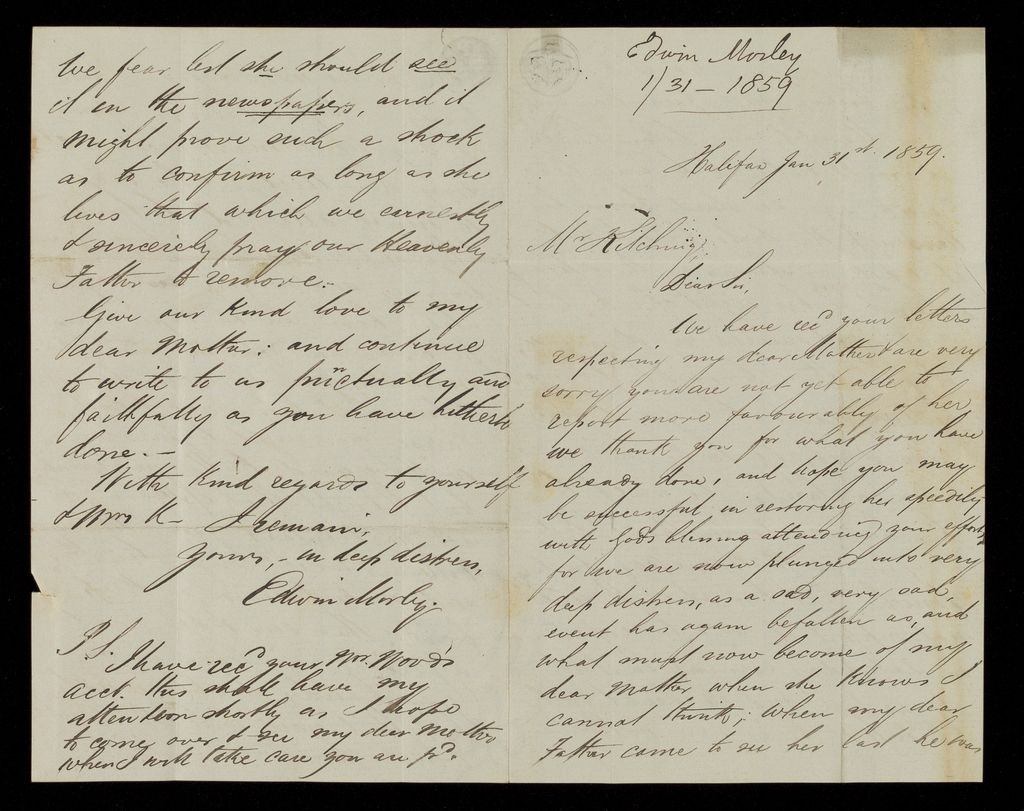 Edwin Morley
1/31 - 1859
Halifax Jan 31st. 1859.
Mr Kitching,
Dear Sir,
We have recd your letters
respecting my dear Mother & are very
sorry you are not yet able to
report more favourably of her
we thank you for what you have
already done, and hope you may
be successful in restoring her speedily
with Gods blessing attending your efforts
for we are now plunged into very
deep distress, as a sad, very sad,
event has again befallen us, and
what must now become of my
dear Mother when she knows I
cannot think; when my dear
Father came to see her last he was
We fear lest she should see
it in the newspapers, and it
might prove such a shock
as to confirm as long as she
lives that which we earnestly
& sincerely pray our Heavenly
Father to remove.-
Give our kind love to my
dear Mother: and continue
to write to us punctually and
faithfully as you have hitherto
done.-
With kind regards to yourself
& Mrs K- I remain,
Yours, - in deep distress,
Edwin Morley.
P.S. I have recd your Mr. Wood's
acct. this shall have my
attention shortly as I hope
to come over & see my dear Mother
when I will take care you are pd.